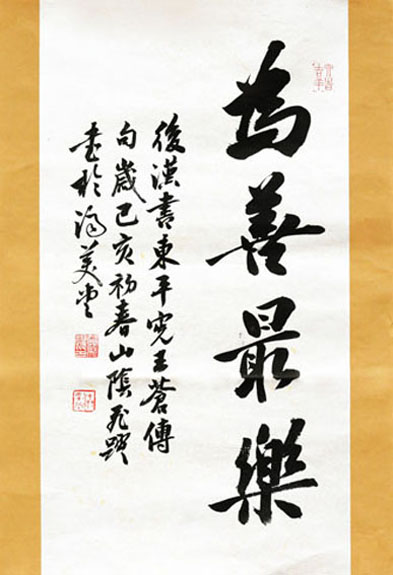 為善最樂
後漢書東平憲王蒼傳
句歲己亥初春山陰
書於 美堂